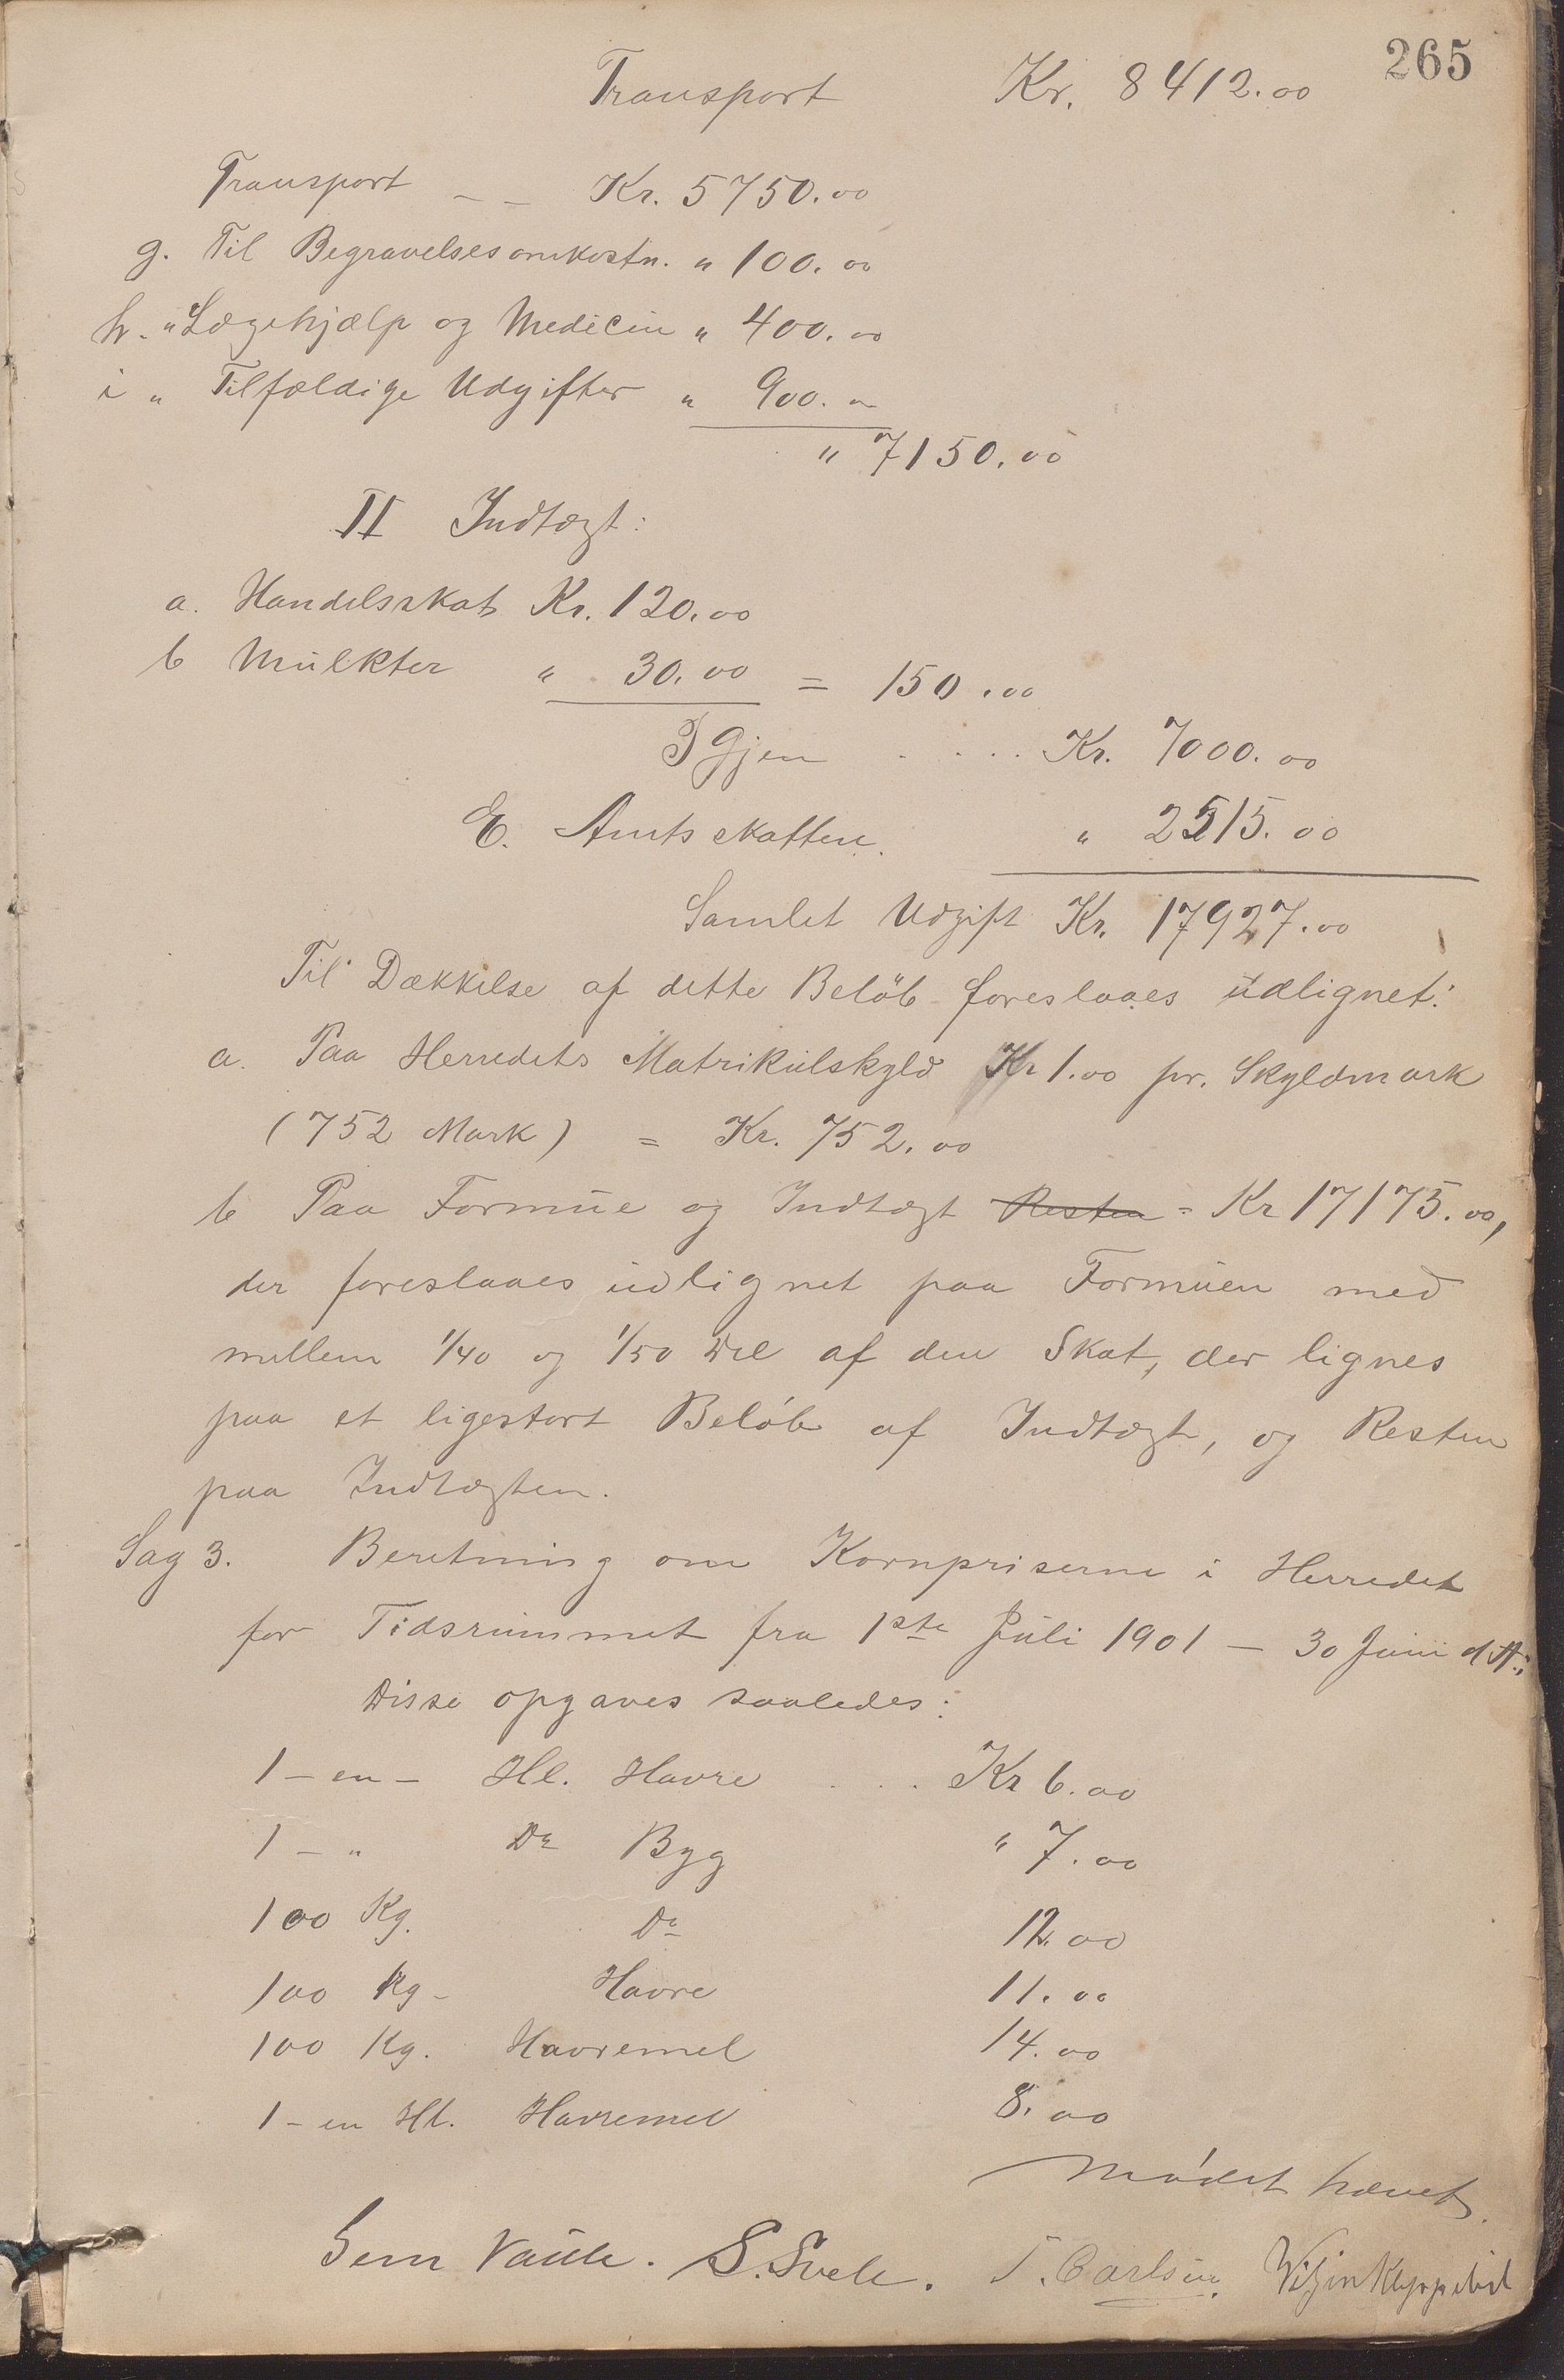 265
Transport Kr. 8412.00
Transport – – Kr. 5750.00
g. Til Begravelsesomkostn. " 100.00
h. " Lægehjælp og Medicin " 400.00
i " Tilfældige Udgifter " 900.00
" 7150.00
II Indtægt:
a. Handelsskat Kr. 120.00
b Mulkter " 30.00 = 150.00
Igjen . . . . Kr. 7000.00
E. Amtsskatten. " 2515.00
Samlet Udgift Kr. 17927.00
Til Dækkelse af dette Beløb foreslaaes udlignet:
a. Paa Herredets Matrikulskyld Kr 1.00 pr. Skyldmark
(752 Mark) = Kr. 752.00
b Paa Formue og Indtægt Resten = Kr 17175.00,
der foreslaaes udlignet paa Formuen med
mellem 1/40 og 1/50 Del af den Skat, der lignes
paa et ligestort Beløb af Indtægt, og Resten
paa Indtægten.
Sag 3. Beretning om Kornpriserne i Herredet
for Tidsrummet fra 1ste Juli 1901 – 30 Juni d. A.:
Disse opgaves saaledes:
1 – en – Hl. Havre . . . Kr 6.00
1 – " Do Byg " 7.00
100 Kg. Do 12.00
100 Kg – Havre 11.00
100 Kg. Havremel 14.00
1 – en Hl. Havremel 8.00
Mødet hævet.
S. Svele. T. Carlsen.